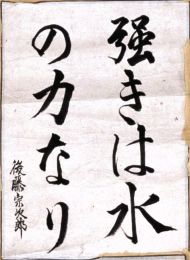 強きは水
の力なり
後藤宗次郎